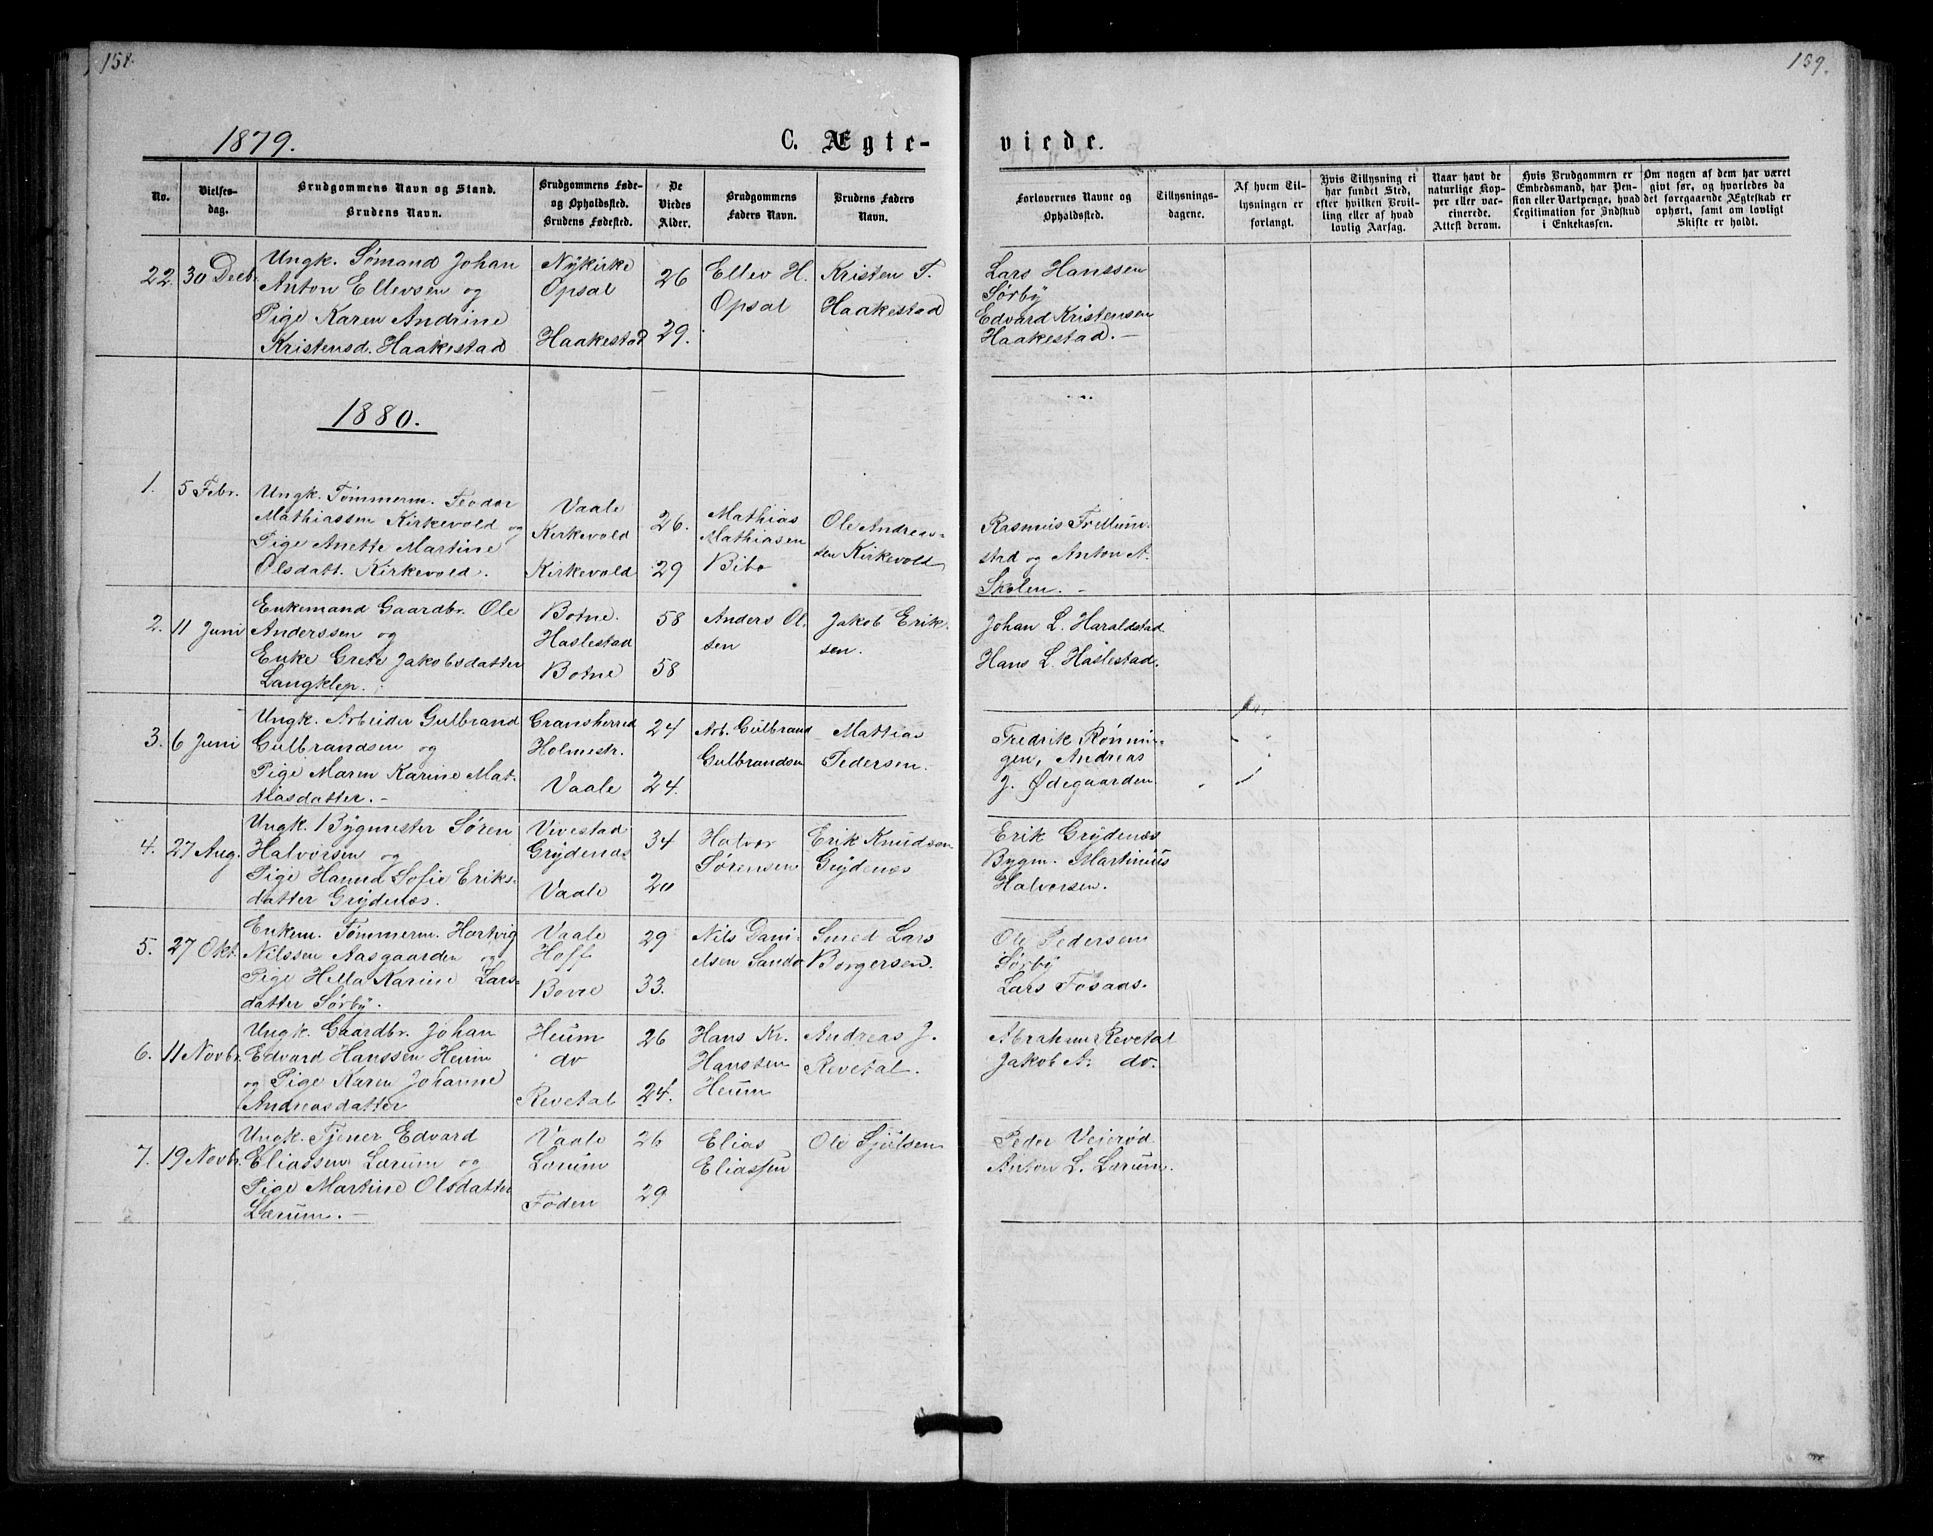 158.
159.
1879.
C. Ægte-
viede.
No.
Vielses-
dag.
Brudgommens Navn og Stand.
Brudens Navn.
Brudgommens Føde-
og Opholdssted.
Brudens Fødested.
De
Viedes
Alder.
Brudgommens
Faders Navn.
Brudens Faders
Navn.
Forlovernes Navne og
Opholdssted.
Tillysnings-
dagene.
Af hvem Til-
lysningen er
forlangt.
Hvis Tillysning ei
har fundet Sted,
efter hvilken Bevil-
ling eller af hvad
lovlig Aarsag.
Naar havt de
naturlige Kop-
per eller vac-
cinerede.
Attest derom.
Hvis Brudgommen er
Embedsmand, har Pen-
sion eller Vartpenge, hvad
Legitimation for Indskud
i Enkekassen.
Om nogen af dem har været
givt før, og hvorledes da
det foregaaende Ægteskab er
ophørt, samt om lovligt
Skifte er holdt.
22. 30 Decb.
Ungk. Sømand Johan
Anton Ellevsen og
Pige Karen Andrine
Kristensd. Haakestad
Nykirke
Opsal
Haakestad
26
29.
Ellev H.
Opsal
Kristen T.
Haakestad
Lars Hanssen
Sørby
Edvard Kristensen
Haakestad. —
1880.
1. 5 Febr.
Ungk. Tømmerm. Teodor
Mathiassen Kirkevold og
Pige Anette Martine
Olsdatt. Kirkevold.
Vaale
Kirkevold
Kirkevold
26.
29
Mathias
Mathiasen
Bibo
Ole Andreas-
sen Kirkevold
Rasmus Trellum-
stad og Anton A.
Skolen. —
2. 11 Juni
Enkemand Gaardbr. Ole
Anderssen og
Enke Grete Jakobsdatter
Langklep.
Botne.
Haslestad
Botne
58
58
Anders Ol-
sen
Jakob Erik-
sen.
Johan L. Haraldstad
Hans L. Haslestad.
3. 6 Juni
Ungk. Arbeider Gulbrand
Gulbrandsen og
Pige Maren Karine Mat-
tiasdatter. —
Gransherred
Holmestr.
Vaale
24
24.
Arb. Gulbrand
Gulbrandsen
Mattias
Pedersen.
Fredrik Rønnin-
gen, Andreas
J. Ødegaarden
4. 27 Aug.
Ungk. Bygmester Søren
Halvorsen og
Pige Hanna Sofie Eriks-
datter Grydenæs.
Vivestad
Grydenæs
Vaale
34
20
Halvor
Sørensen
Erik Knudsen
Grydenæs
Erik Grydenæs
Bygm. Martinius
Halvorsen.
5. 27 Okt.
Enkem. Tømmerm. Hartvig
Nilssen Aasgaarden og
Pige Hella Karine Lars-
datter Sørby.
Vaale
Hoff
Borre
29
33.
Nils Dani-
elsen Sando
Smed Lars
Borgersen.
Ole Pedersen
Sørby
Lars Fosaas.
6. 11 Novbr.
Ungk. Gaardbr. Johan
Edvard Hanssen Heum
og Pige Karen Johanne
Andreasdatter
Heum
do
Revetal
26
24.
Hans Kr.
Hanssen
Heum
Andreas J.
Revetal.
Abraham Revetal
Jakob A. do.
7. 19 Novbr.
Ungk. Tjener Edvard
Eliassen Lærum og
Pige Martine Olsdatter
Lærum. —
Vaale
Lærum
Foden
26
29
Elias
Eliassen
Ole Sjulsen
Peder Vejerød
Anton L. Lærum.